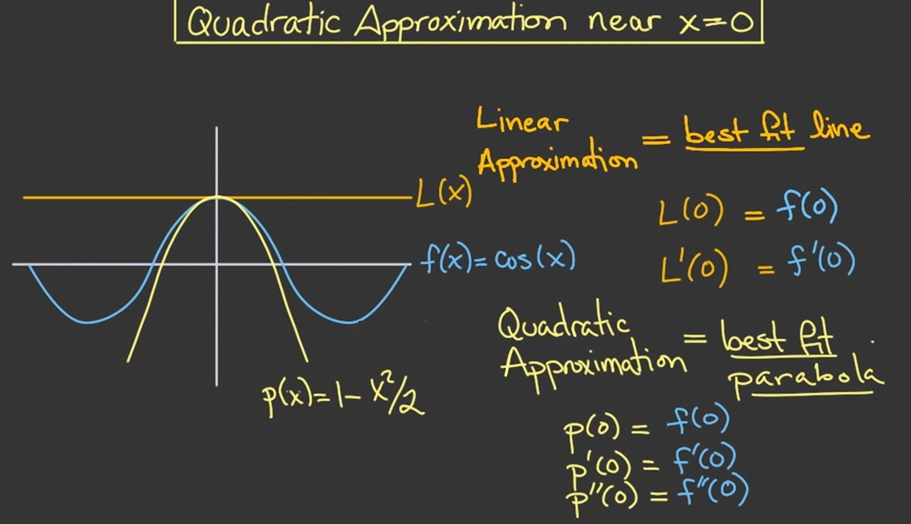 Quadratic Approximation near x=0
Linear
Approximation = best fit line
L(x)
L(0) = f(0)
f(x)=cos(x)
L'(0) = f'(0)
Quadratic
Approximation = best fit
parabola
p(x)=1-x²/2
p(0) = f(0)
p'(0) = f'(0)
p''(0) = f''(0)